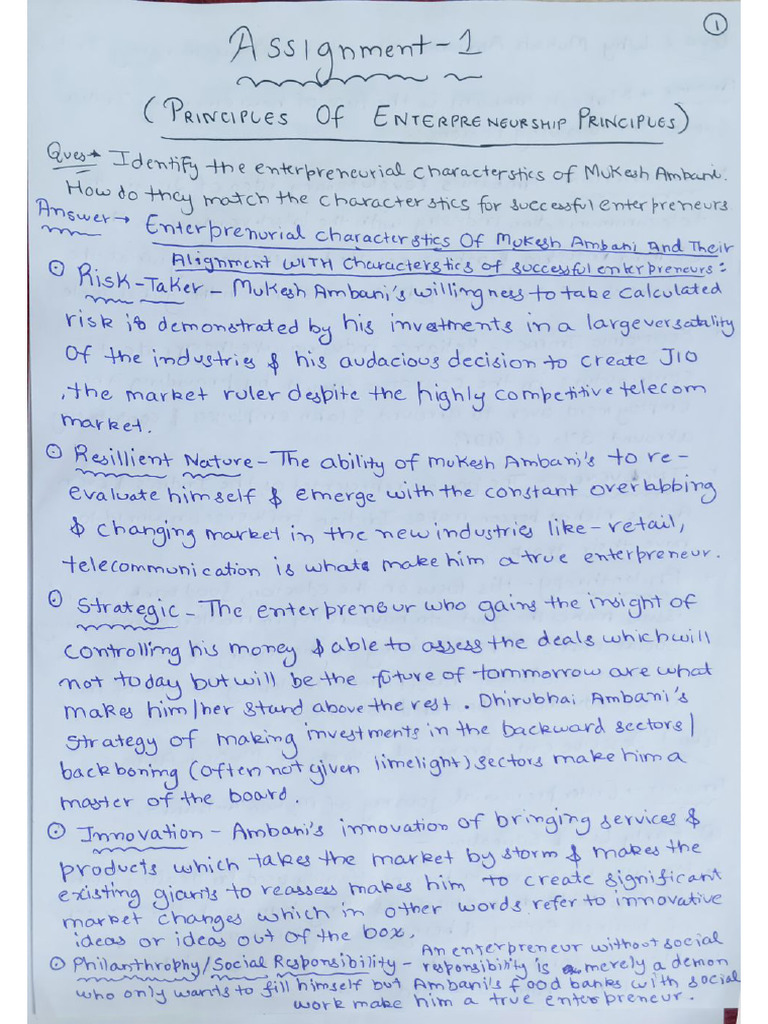 1
Assignment-1
(PRINCIPLES OF ENTERPRENEURSHIP PRINCIPLES)
Ques→ Identify the enterpreneurial characterstics of Mukesh Ambani.
How do they match the characterstics for successful enterpreneurs
Answer→ Enterprenurial characterstics Of Mukesh Ambani And Their
Alignment WITH Characterstics of successful enterpreneurs:
Risk-Taker - Mukesh Ambani's willingness to take calculated
risk is demonstrated by his investments in a large versatality
of the industries & his audacious decision to create JIO
, the market ruler despite the highly competitive telecom
market.
Resillient Nature - The ability of Mukesh Ambani's to re-
evaluate himself & emerge with the constant overlabbing
& changing market in the new industries like - retail,
telecommunication is whats make him a true enterpreneur.
Strategic - The enterpreneur who gains the insight of
controlling his money & able to assess the deals which will
not today but will be the future of tommorrow are what
makes him/her stand above the rest. Dhirubhai Ambani's
strategy of making investments in the backward sectors/
backboning (often not given limelight) sectors make him a
master of the board.
Innovation - Ambani's innovation of bringing services &
products which takes the market by storm & makes the
existing giants to reassess makes him to create significant
market changes which in other words refer to innovative
ideas or ideas out of the box.
Philanthrophy/Social Responsibility - An enterpreneur without social
responsibility is merely a demon
who only wants to fill himself but Ambani's food banks with social
work make him a true enterpreneur.